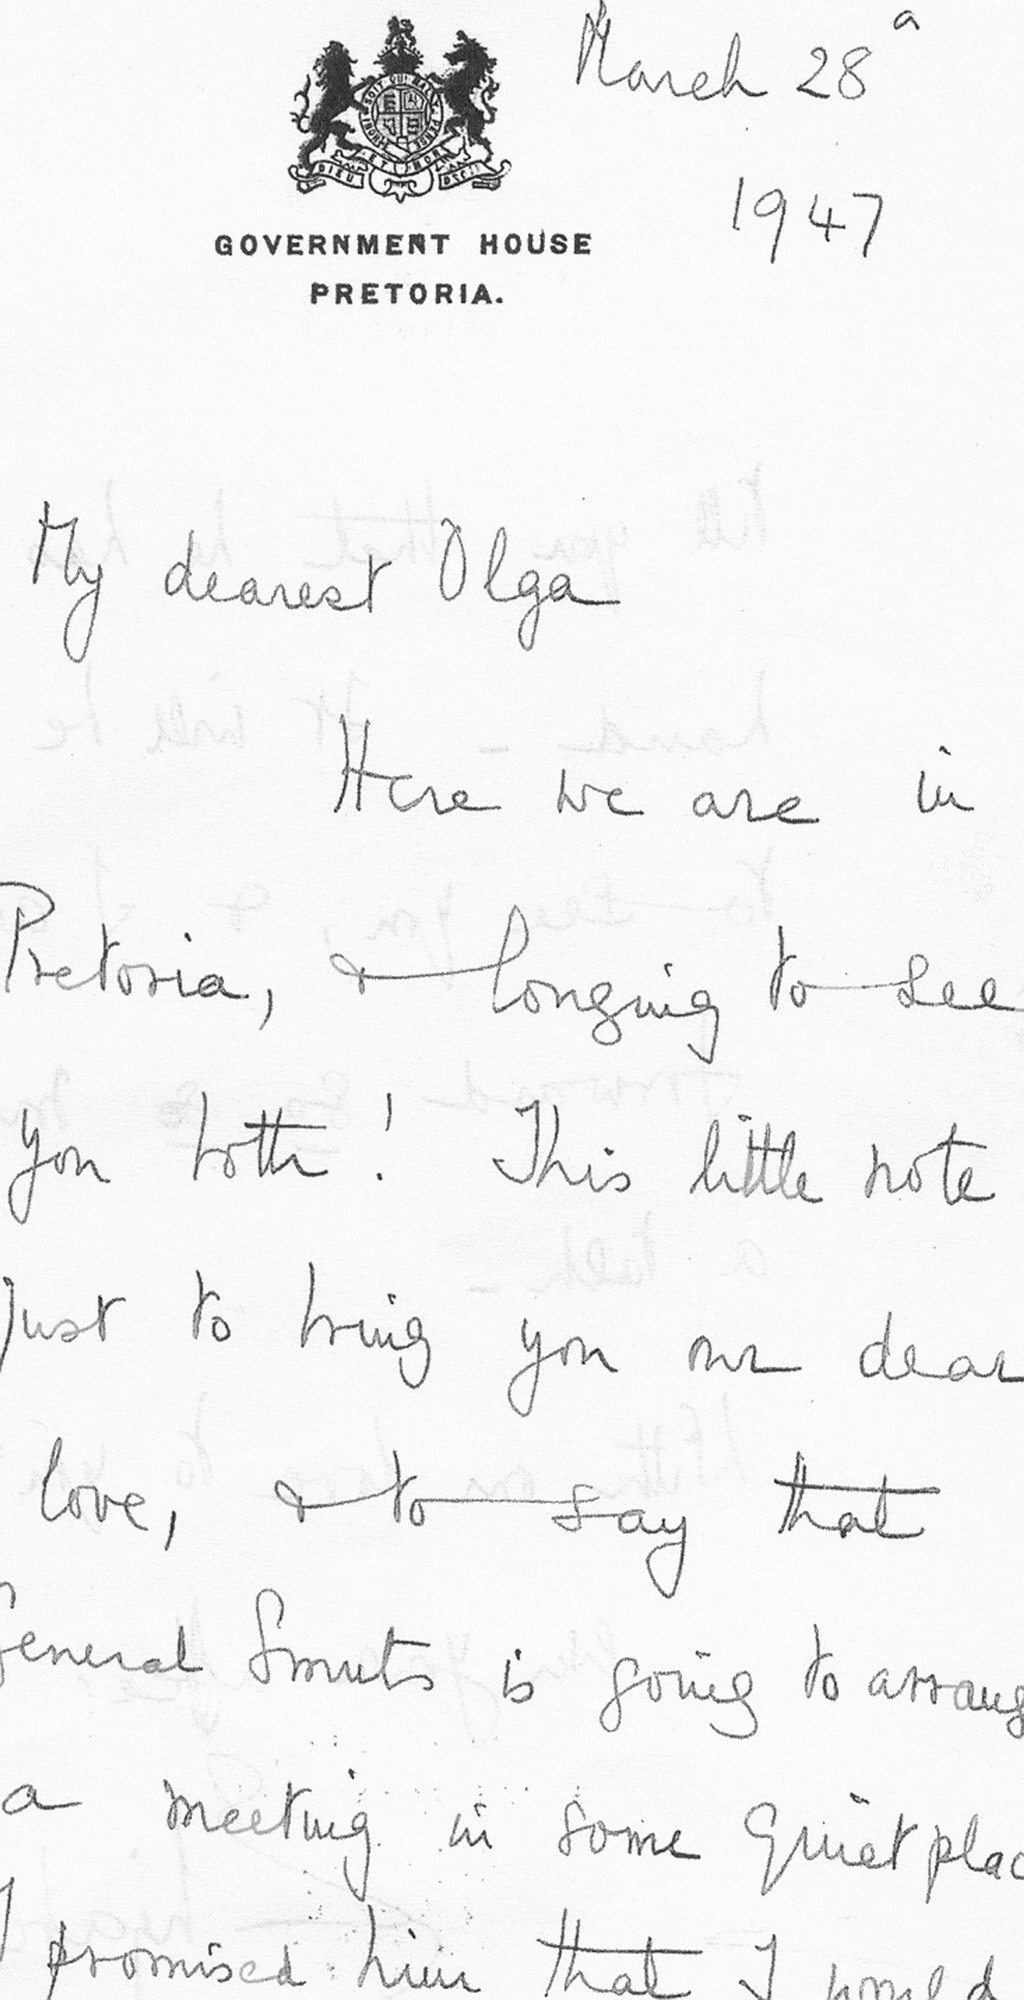 March 28
1947
GOVERNMENT HOUSE
PRETORIA.
My dearest Olga
Here we are in
Pretoria, & longing to see
you both! This little note
just to bring you our dear
love, & to say that
General Smuts is going to arrang
a meeting in some quiet plac
I promised him that I would